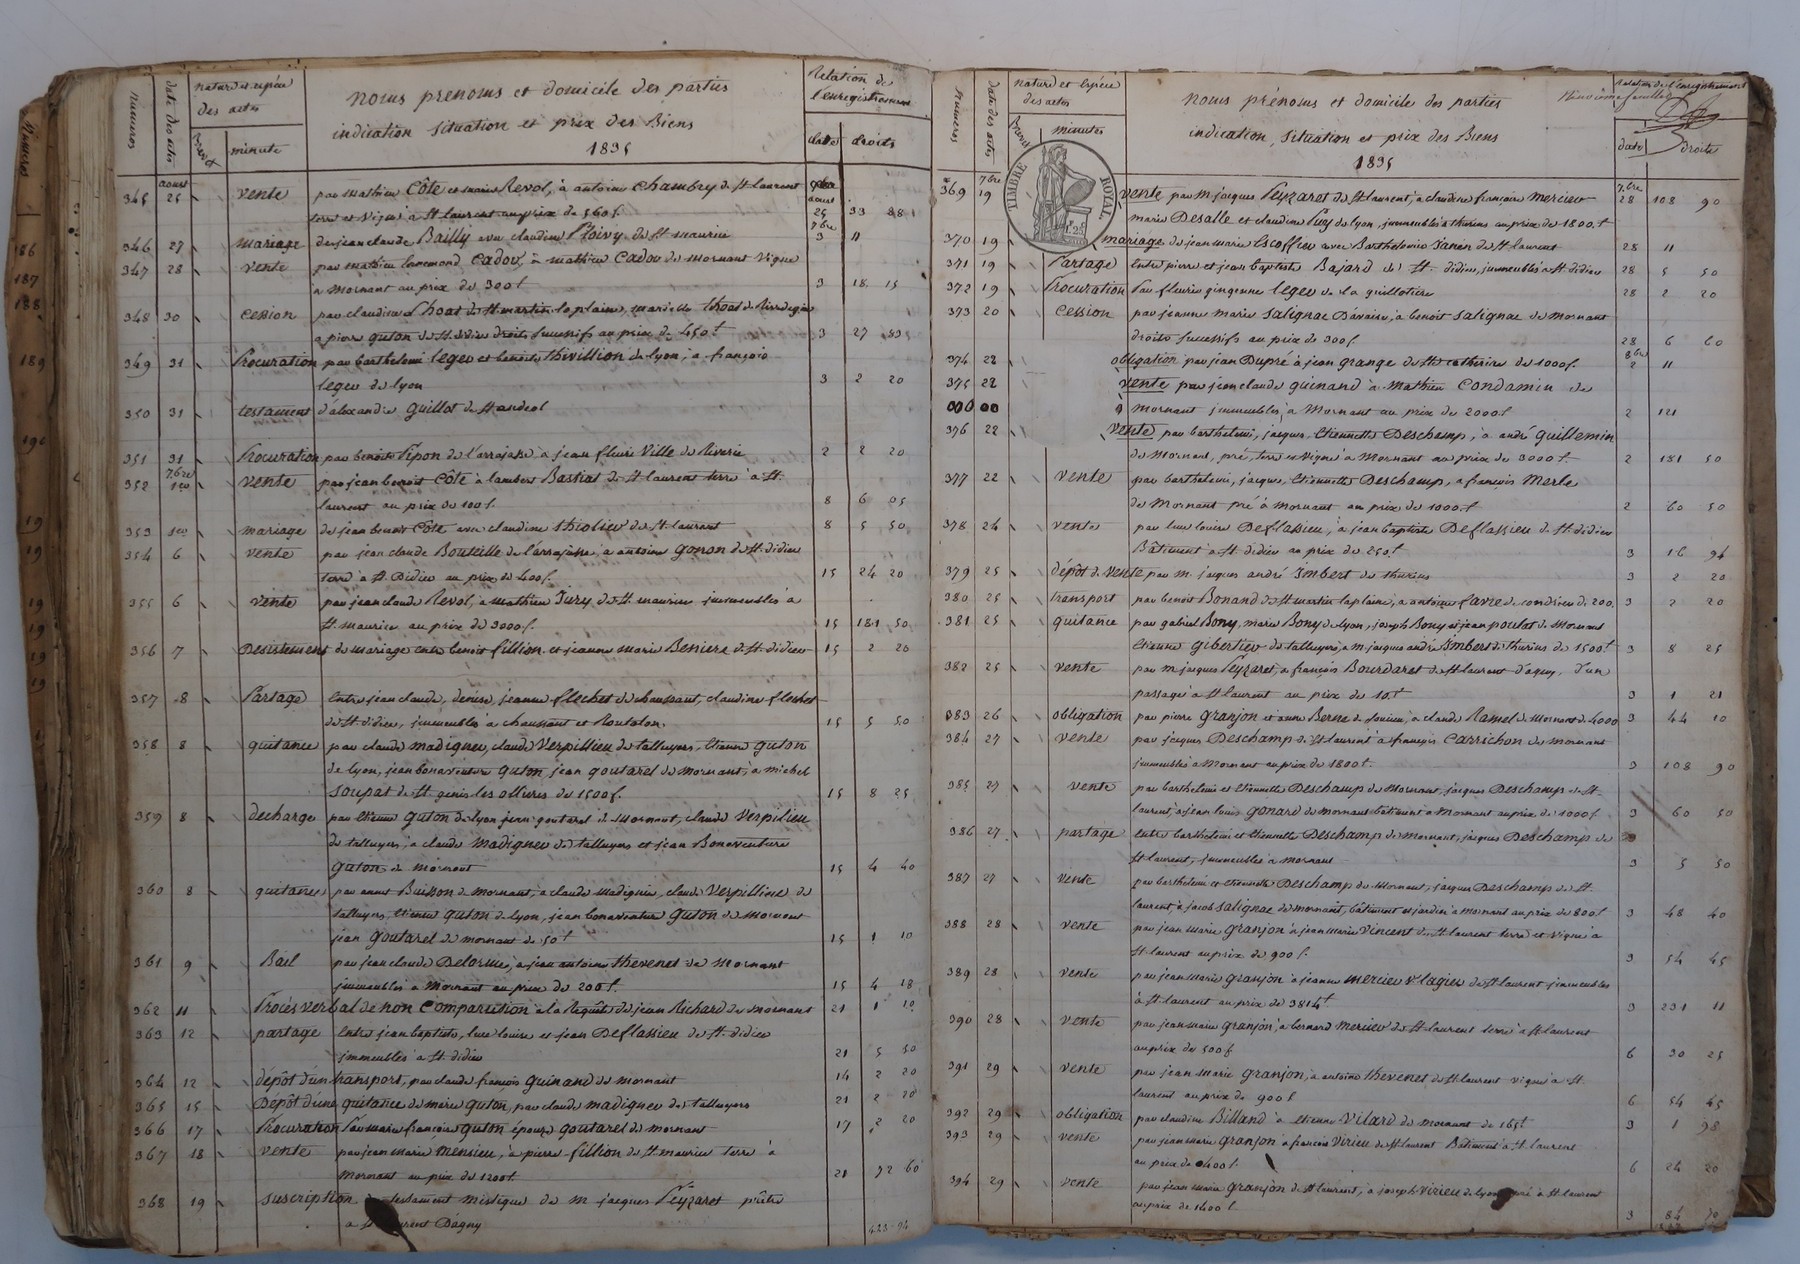 numeros
date des actes
nature et espèce
des actes
Brevet
minute
noms prenoms et domicile des parties
indication situation et prix des Biens
1835
Relation de
l'enregistrement
date
droits
aoust
345 25 vente par mathieu Côte et marie Revol, à antoine Chambry de St laurent
terre et vigne à St laurent au prix de 560 f. 25 33 88
346 27 mariage de jean claude Bailly avec claudine Ploivy de St maurice 7bre 3 11
347 28 vente par mathieu Cadou, à mathieu Cadou de Mornant vigne
à Mornant au prix de 300 f 3 18 15
348 30 Cession par claudine Thoat de St martin la plaine,
à pierre guton de St didier droits successifs au prix de 450 f 3 27 83
349 31 Procuration par barthelemi leger et benoite thivillion de lyon, à françois
leger de lyon 3 2 20
350 31 testament d'alexandre guillot de St andeol
351 31 Procuration par benoite Pipon de l'arrajasse à jean fleuri Ville de Riverie 2 2 20
7bre
352 1er vente par jean benoit Côte à lambert Bastiat de St laurent terre à St
laurent au prix de 100 f. 8 6 05
353 1er mariage de jean benoit Côte avec claudine thiollier de St laurent 8 5 50
354 6 vente par jean claude Bouteille de l'arrajasse, à antoine gonon de St didier
terre à St Didier au prix de 400 f. 15 24 20
355 6 vente par jean claude Revol, à mathieu Jury de St maurice immeubles à
St. maurice au prix de 3000 f. 15 181 50
356 7 Desistement de mariage entre benoit fillion et jeanne marie Beniere de St didier 15 2 20
357 8 Partage entre jean claude, denise, jeanne flechet de chaussant, claudine flechet
de St didier, immeubles à chaussant et Rontalon. 15 5 50
358 8 quitance par claude madignier, claude Verpillieu de talluyers, Etienne guton
de lyon, jean bonaventure guton, jean goutarel de mornant, à michel
Soupat de St genis les ollieres de 1500 f. 15 8 25
359 8 decharge par Etienne guton de lyon jean goutarel de Mornant, claude Verpilieu
de talluyers, à claude madignier de talluyers et jean Bonaventure
guton de mornant 15 4 40
360 8 quitance par Buisson de mornant, à claude madignier, claude Verpillieu de
talluyers, Etienne guton de lyon, jean bonaventure guton de Mornant
jean goutarel de mornant de 50 f 15 1 10
361 9 Bail par jean claude Delorme, à jean antoine thevenet de Mornant
immeubles à Mornant au prix de 200 f. 15 4 18
362 11 Procès verbal de non Comparution à la Requête de jean Richard de Mornant 21 1 10
363 12 partage entre jean baptiste, luce louise et jean Deflassieu de St. didier
immeubles à St didier 21 5 50
364 12 dépôt d'un transport, par claude françois guinand de mornant 14 2 20
365 15 Dépôt d'une quitance de marie guton, par claude madignier de talluyers 21 2 20
366 17 Procuration Par marie françoise guton épouse goutarel de mornant 17 2 20
367 18 vente par jean marie mensieu, à pierre fillion de St maurice terre à
Mornant au prix de 1200 f. 21 72 60
368 19 suscription testament mistique de m jacques Peyzaret prêtre
à St laurent Dagny
numeros
date des actes
nature et espèce
des actes
Brevet
minutes
noms prénoms et domicile des parties
indication, situation et prix des Biens
1835
Relation de l'enregistrement
date
droits
TIMBRE ROYAL
7bre
369 19 vente par m jacques Peyzaret de St laurent, à claudine françoise mercier 7bre 28 108 90
marie Desalle et claudine Puy de lyon, immeubles à thurins au prix de 1800 f
370 19 mariage de jean marie Escoffier avec Barthelemie Janin de St laurent 28 11
371 19 Partage entre pierre et jean baptiste Bajard de St. didier, immeubles à St didier 28 5 50
372 19 Procuration Par fleurie gingenne leger de la guillotière 28 2 20
373 20 Cession par jeanne marie Salignac Davaise, à benoit Salignac de mornant
droits successifs au prix de 300 f. 28 6 60
374 22 obligation par jean Dupré à jean grange de Ste catherine de 1000 f. 8bre 2 11
375 22 vente par jean claude guinand à mathieu Condamin de
Mornant immeubles, à Mornant au prix de 2000 f 2 121
376 22 vente par barthelemi, jacques, Etiennette Deschamp, à andré guillemin
de Mornant, pré, terre et vigne à Mornant au prix de 3000 f. 2 181 50
377 22 vente par barthelemi, jacques, Etiennette Deschamp, à françois Merle
de Mornant pré à mornant au prix de 1000 f 2 60 50
378 24 vente par luce louise Deflassieu, à jean baptiste Deflassieu de St. didier
Bâtiment à St didier au prix de 250 f. 3 16 94
379 25 dépôt de vente par m. jacques andré Imbert de thurins 3 2 20
380 25 transport par benoit Bonand de St martin la plaine, à antoine favre de condrieu de 200. 3 2 20
381 25 quitance par gabriel Bony, marie Bony de lyon, joseph Bony et jean poulat de Mornant
Etienne gibertier de talluyers, à m. jacques andré Imbert de thurins de 1500 f 3 8 25
382 25 vente par m. jacques Peyzaret, à françois Bourdaret de St laurent d'agny, d'un
passage à St laurent au prix de 10 f 3 1 21
383 26 obligation par pierre granjon et anne Berne de soucieu, à claude Ramel de Mornant de 4000 3 44 10
384 27 vente par jacques Deschamp de St laurent à françois Carrichon de mornant
immeubles à Mornant au prix de 1800 f. 3 108 90
385 27 vente par barthelemi et Etiennette Deschamp de Mornant, jacques Deschamp de St.
laurent, à jean louis gonard de mornant bâtiment à Mornant au prix de 1000 f 3 60 50
386 27 partage entre barthelemi et Etiennette Deschamp de mornant, jacques Deschamp de
St laurent, immeubles à mornant 3 5 50
387 27 vente par barthelemi et Etiennette Deschamp de Mornant, jacques Deschamp de St.
laurent, à jacob Salignac de mornant, bâtiment et jardin à Mornant au prix de 800 f 3 48 40
388 28 vente par jean marie granjon à jean marie vincent de St laurent terre et vigne à
St laurent au prix de 900 f. 3 54 45
389 28 vente par jean marie granjon à jeanne mercier Ve lagier de St laurent immeubles
à St laurent au prix de 3814 f 3 231 11
390 28 vente par jean marie granjon, à bernard mercier de St laurent terre à St laurent
au prix de 500 f. 6 30 25
391 29 vente par jean marie granjon, à antoine thevenet de St laurent vigne à St.
laurent au prix de 900 f 6 54 45
392 29 obligation par claudine Billand à etienne Vilard de mornant de 165 f 3 1 98
393 29 vente par jean marie granjon à françois Virieu de St laurent Bâtiment à St laurent
au prix de 400 f. 6 24 20
394 29 vente par jean marie granjon de St laurent, à joseph Virieu de lyon pré à St laurent
au prix de 1400 f 3 84 70